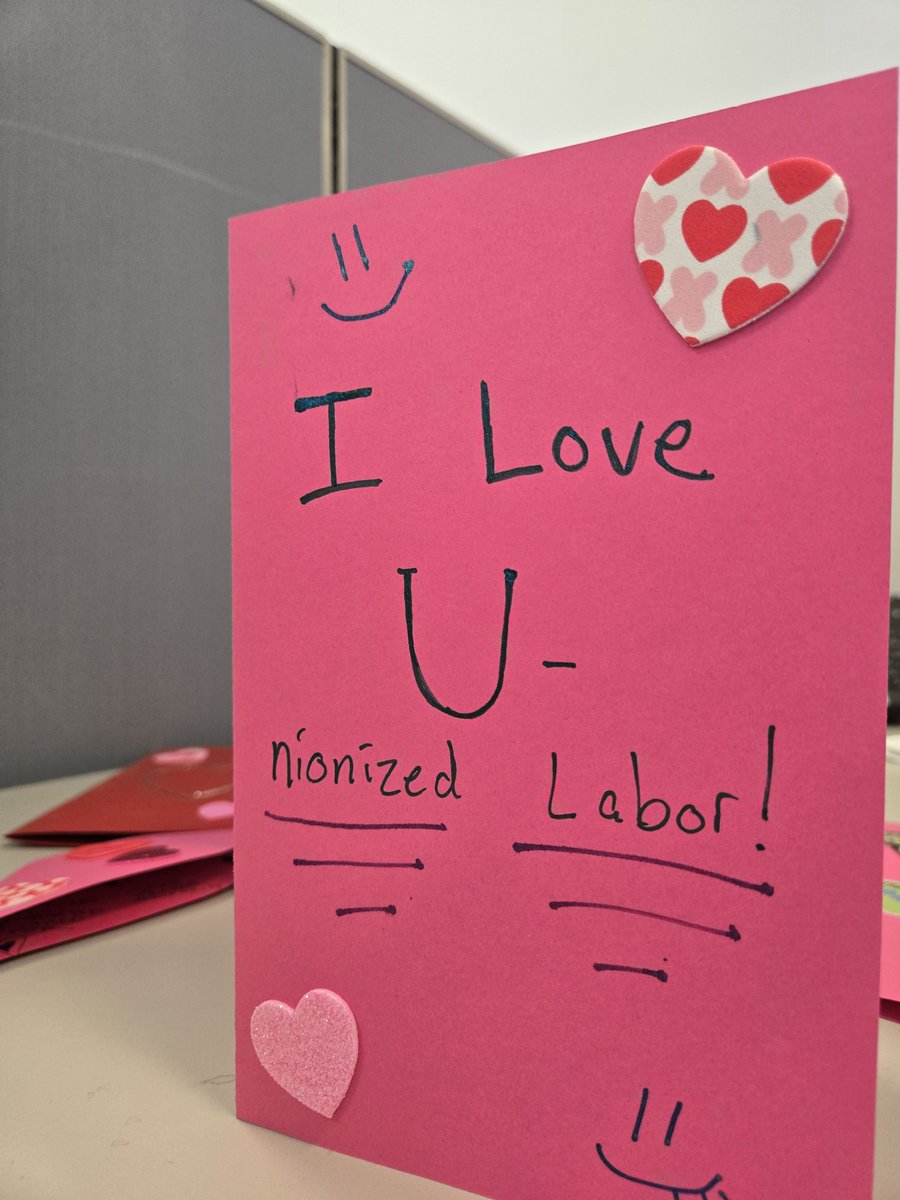 I Love
U-
nionized Labor!